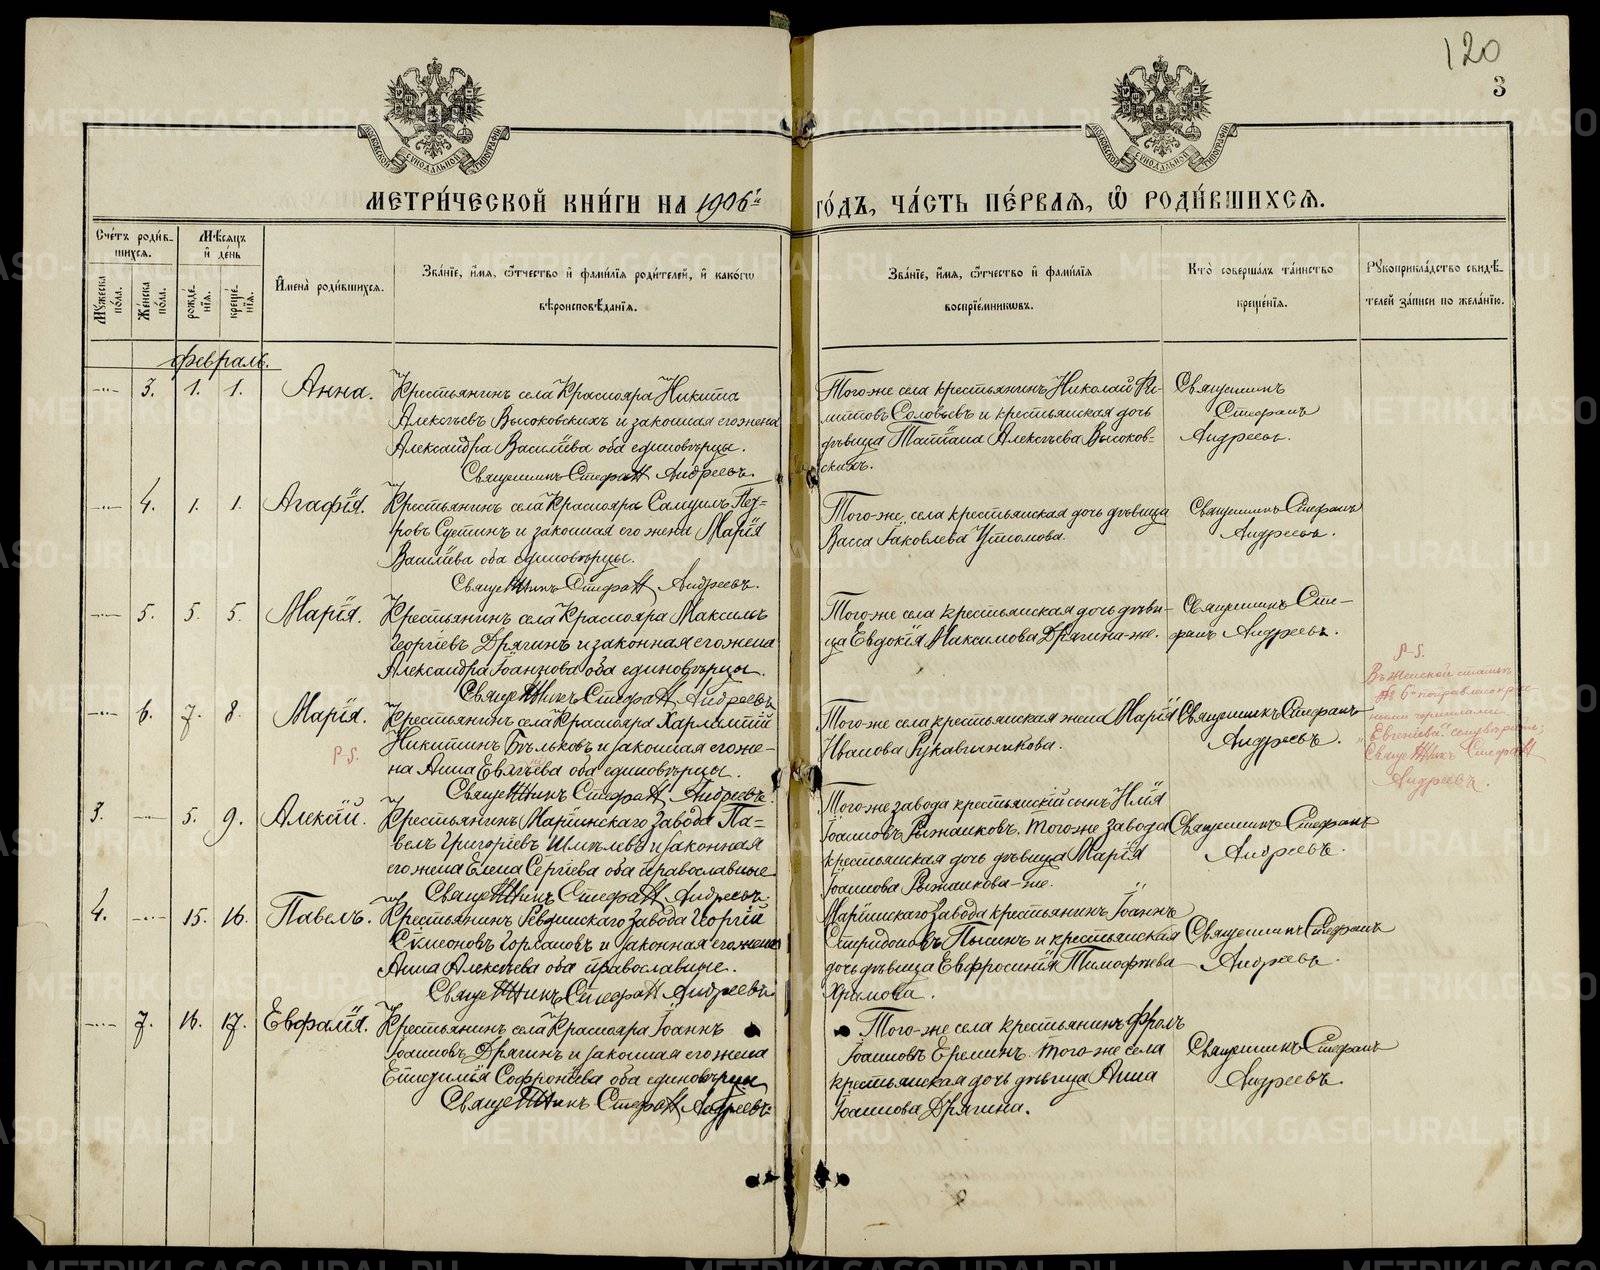 120
3
МЕТРИ́ЧЕСКОЙ КНИ́ГИ НА 1906й ГО́ДЪ, ЧА́СТЬ ПЕ́РВАЯ, Ѡ РОДИ́ВШИХСЯ.
Сче́тъ роди́в-
шихся.
Мѣ́сяцъ
и де́нь
Му́жеска по́ла.
Же́нска по́ла.
рожде́нїя.
креще́нїя.
Имена̀ роди́вшихся.
Зва́нїе, и́мя, о́тчество и фами́лїя роди́телей, и како́гѡ
вѣроисповѣ́данїя.
Зва́нїе, и́мя, о́тчество и фами́лїя
воспрїе́мниковъ.
Кто̀ соверша́лъ та́инство
креще́нїя.
Рукоприкла́дство свидѣ́-
телей за́писи по жела́нїю.
Февраль.
3. 1. 1. Анна.
Крестьянинъ села Краснояра Никита
Алексѣевъ Высоковскихъ и законная его жена
Александра Васильева оба единовѣрцы.
Священникъ Стефанъ Андреевъ.
Того-же села крестьянинъ Николай Фи-
липповъ Соловьевъ и крестьянская дочь
дѣвица Татіана Алексѣева Высоков-
скихъ.
Священникъ
Стефанъ
Андреевъ.
4. 1. 1. Агафія.
Крестьянинъ села Краснояра Самуилъ Пет-
ровъ Сустинъ и законная его жена Марія
Васильева оба единовѣрцы.
Священникъ Стефанъ Андреевъ.
Того-же села крестьянская дочь дѣвица
Васса Іаковлева Устюмова.
Священникъ Стефанъ
Андреевъ.
5. 5. 5. Марія.
Крестьянинъ села Краснояра Максимъ
Георгіевъ Дрягинъ и законная его жена
Александра Іоаннова оба единовѣрцы.
Священникъ Стефанъ Андреевъ
Того-же села крестьянская дочь дѣви-
ца Евдокія Максимова Дрягина-же.
Священникъ Сте-
фанъ Андреевъ.
6. 7. 8. Марія.
P-S.
Крестьянинъ села Краснояра Харлампій
Никитинъ Бѣльковъ и законная его же-
на Анна оба единовѣрцы.
Священникъ Стефанъ Андреевъ.
Того-же села крестьянская жена Марія
Иванова Рукавишникова.
Священникъ Стефанъ
Андреевъ.
P-S.
Въ женской статьѣ
№ 6 поправлено крас-
ными чернилами
Священникъ Стефанъ
Андреевъ.
3. 5. 9. Алексій.
Крестьянинъ Маріинскаго завода Па-
велъ Григоріевъ Шмелевъ и законная
его жена Елена Сергіева оба православные
Священникъ Стефанъ Андреевъ.
Того-же завода крестьянскій сынъ Илія
Іоанновъ Рыжанковъ. Того-же завода
крестьянская дочь дѣвица Марія
Іоаннова Рыжанкова-же.
Священникъ Стефанъ
Андреевъ.
4. 15. 16. Павелъ.
Крестьянинъ Ревдинскаго завода Георгій
Симеоновъ и законная его жена
Анна Алексѣева оба православные.
Священникъ Стефанъ Андреевъ.
Маріинскаго завода крестьянинъ Іоаннъ
Спиридоновъ и крестьянская
дочь дѣвица Евфросинія Тимофѣева
Храмова.
Священникъ Стефанъ
Андреевъ.
7. 16. 17. Евфалія.
Крестьянинъ села Краснояра Іоаннъ
Іоанновъ Дрягинъ и законная его жена
Епистимія Софроніева оба единовѣрцы
Священникъ Стефанъ Андреевъ.
Того-же села крестьянинъ Фролъ
Іоанновъ Ереминъ. того-же села
крестьянская дочь дѣвица Анна
Іоаннова Дрягина.
Священникъ Стефанъ
Андреевъ.
METRIKI.GASO-URAL.RU